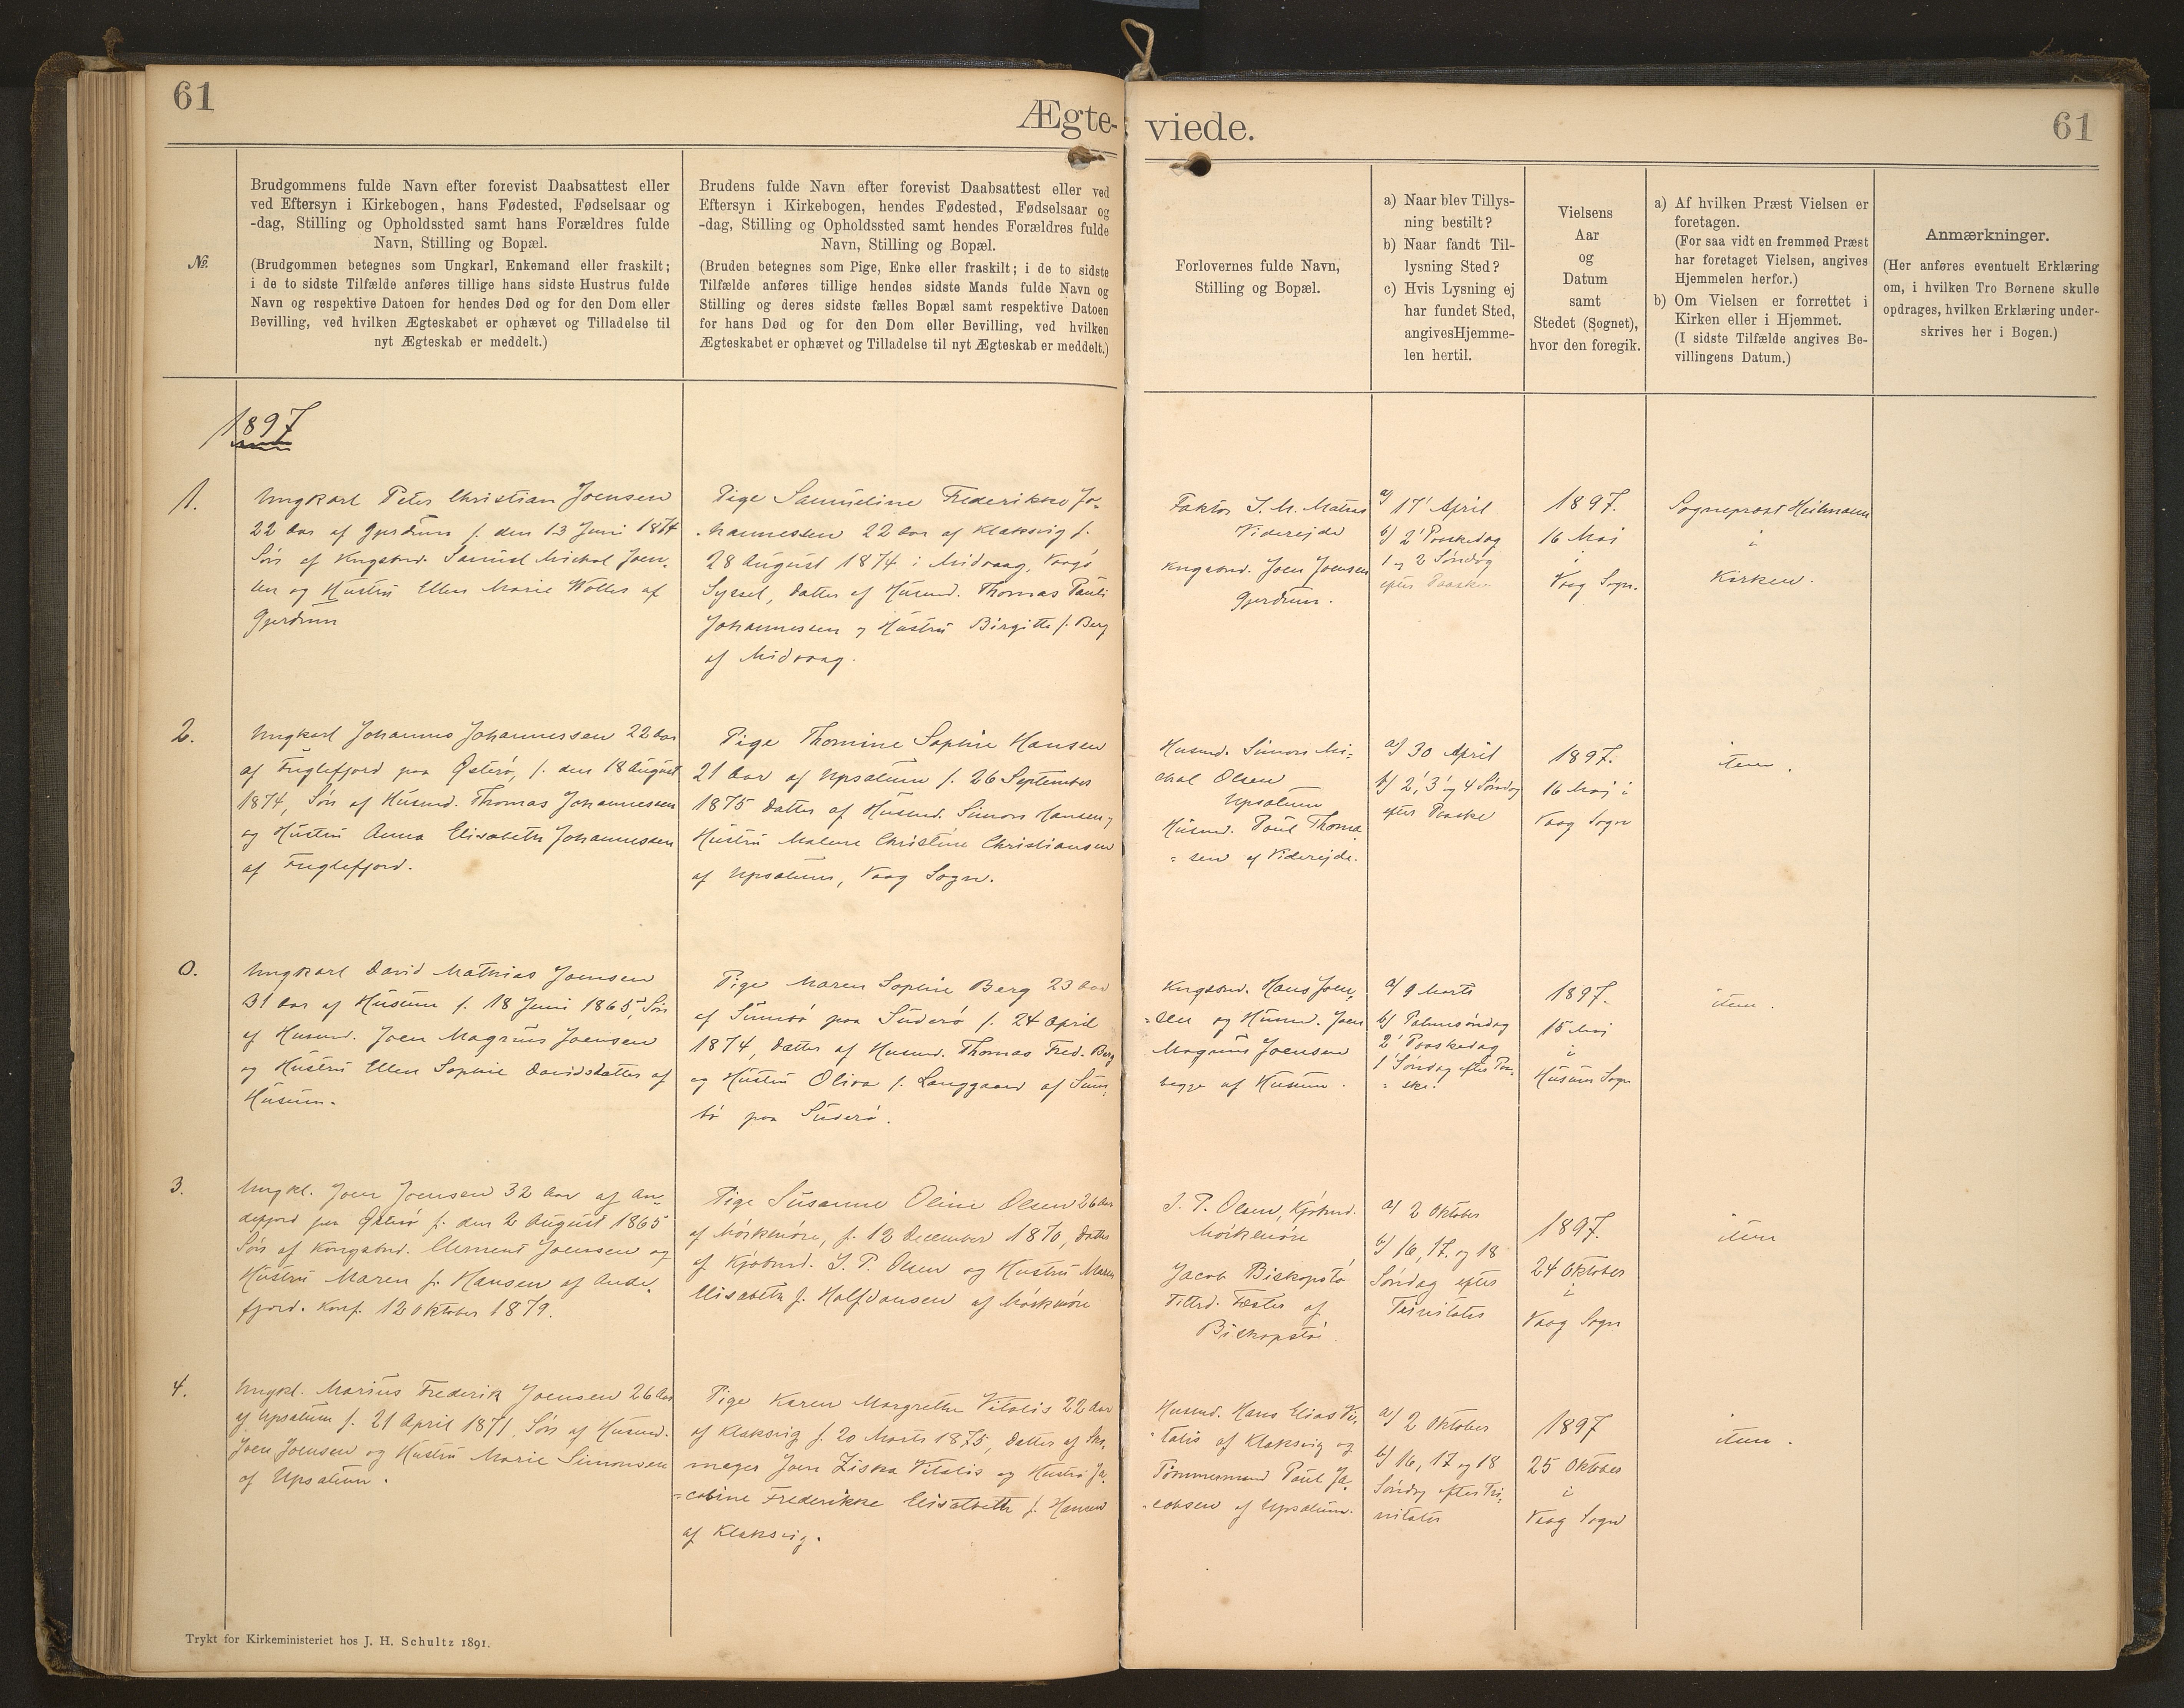 61
Ægte-
viede.
61
№.
Brudgommens fulde Navn efter forevist Daabsattest eller
ved Eftersyn i Kirkebogen, hans Fødested, Fødselsaar og
-dag, Stilling og Opholdssted samt hans Forældres fulde
Navn, Stilling og Bopæl.
(Brudgommen betegnes som Ungkarl, Enkemand eller fraskilt;
i de to sidste Tilfælde anføres tillige hans sidste Hustrus fulde
Navn og respektive Datoen for hendes Død og for den Dom eller
Bevilling, ved hvilken Ægteskabet er ophævet og Tilladelse til
nyt Ægteskab er meddelt.)
Brudens fulde Navn efter forevist Daabsattest eller ved
Eftersyn i Kirkebogen, hendes Fødested, Fødselsaar og
-dag, Stilling og Opholdssted samt hendes Forældres fulde
Navn, Stilling og Bopæl.
(Bruden betegnes som Pige, Enke eller fraskilt; i de to sidste
Tilfælde anføres tillige hendes sidste Mands fulde Navn og
Stilling og deres sidste fælles Bopæl samt respektive Datoen
for hans Død og for den Dom eller Bevilling, ved hvilken
Ægteskabet er ophævet og Tilladelse til nyt Ægteskab er meddelt.)
Forlovernes fulde Navn,
Stilling og Bopæl.
a) Naar blev Tillys-
ning bestilt?
b) Naar fandt Til-
lysning Sted?
c) Hvis Lysning ej
har fundet Sted,
angives Hjemme-
len hertil.
Vielsens
Aar
og
Datum
samt
Stedet (Sognet),
hvor den foregik.
a) Af hvilken Præst Vielsen er
foretagen.
(For saa vidt en fremmed Præst
har foretaget Vielsen, angives
Hjemmelen herfor.)
b) Om Vielsen er forrettet i
Kirken eller i Hjemmet.
(I sidste Tilfælde angives Be-
villingens Datum.)
Anmærkninger.
(Her anføres eventuelt Erklæring
om, i hvilken Tro Børnene skulle
opdrages, hvilken Erklæring under-
skrives her i Bogen.)
1897
1.
Ungkarl Peter Christian Joensen
22 Aar af Gjerdum f. den 13 Juni 1874
Søn af Kngsbnd. Samuel Michal Joen-
sen og Hustru Ellen Marie Wolles af
Gjerdum
Pige Samueline Frederikke Jo-
hannessen 22 Aar af Klaksvig f.
28 August 1874 i Midvaag, Vaagø
Syssel, Datter af Husmd. Thomas Pauli
Johannessen og Hustru Birgitte f. Berg
af Midvaag.
Faktor J. M. Matras
Viderejde
Kngsbnd. Joen Joensen
Gjerdum.
a) 17' April
b) 2' Paaskedag
1 og 2 Søndag
efter Paaske
1897.
16 Maj
i
Vaag Sogn.
Sogneprovst Heilmann
i
Kirken.
2.
Ungkarl Johannes Johannessen 22 Aar
af Fuglefjord paa Østerø, f. den 18 August
1874, Søn af Husmd. Thomas Johannessen
og Hustru Anna Elisabeth Johannessen
af Fuglefjord.
Pige Thomine Sophie Hansen
21 Aar af Upsalum f. 26 September
1875 Datter af Husmd. Simon Hansen og
Hustru Malene Christine Christiansen
af Upsalum, Vaag Sogn.
Husmd. Simon Mi-
chal Olsen
Upsalum
Husmd. Paul Thoma
sen af Viderejde.
a) 30 April
b) 2', 3' og 4 Søndag
efter Paaske
1897.
16 Maj i
Vaag Sogn
item.
0.
Ungkarl David Mathias Joensen
31 Aar af Husum f. 18 Juni 1865, Søn
af Husmd. Joen Magnus Joensen
og Hustru Ellen Sophie Davidsdatter af
Husum.
Pige Maren Sophie Berg 23 Aar
af Sumbø paa Suderø f. 24 April
1874, Datter af Husmd. Thomas Fred. Berg
og Hustru Oliva f. Langgaard af Sum-
bø paa Suderø.
Kngsbnd. Hans Joen-
sen og Husmd. Joen
Magnus Joensen
begge af Husum.
a) 9 Marts
b) Palmesøndag
2' Paaskedag
1' Søndag efter Paa-
ske.
1897.
15 Maj
i
Husum Sogn
item.
3.
Ungkl. Joen Joensen 32 Aar af An-
defjord paa Østerø f. den 2 August 1865
Søn af Kongsbnd. Clement Joensen og
Hustru Maren f. Hansen af Ande-
fjord. Konf. 12 Oktober 1879.
Pige Susanne Oline Olsen 26 Aar
af Mørkenøre, f. 12 December 1870, Datter
af Kjøbmd. J. P. Olsen og Hustru Maren
Elisabeth f. Halfdansen af Mørkenøre
J. P. Olsen, Kjøbmd.
Mørkenøre
Jacob Biskopstø
Tiltrd. Fæster af
Biskopstø.
a) 2 Oktober
b) 16, 17. og 18
Søndag efter
Trinitatis
1897.
24 Oktober
i
Vaag Sogn
item
4.
Ungkl. Marius Frederik Joensen 26 Aar
af Upsalum f. 21 April 1871, Søn af Husmd.
Joen Joensen og Hustru Marie Simonsen
af Upsalum.
Pige Karen Margrethe Vitalis 22 Aar
af Klaksvig f. 20 Marts 1875, Datter af Sko-
mager Joen Ziska Vitalis og Hustru Ja-
cobine Frederikke Elisabeth f. Hansen
af Klaksvig.
Husmd. Hans Elias Vi-
talis af Klaksvig og
Tømmermand Paul Ja-
cobsen af Upsalum.
a) 2 Oktober
b) 16, 17 og 18
Søndag efter Tri-
nitatis
1897
25 Oktober
i
Vaag Sogn
item.
Trykt for Kirkeministeriet hos J. H. Schultz 1891.